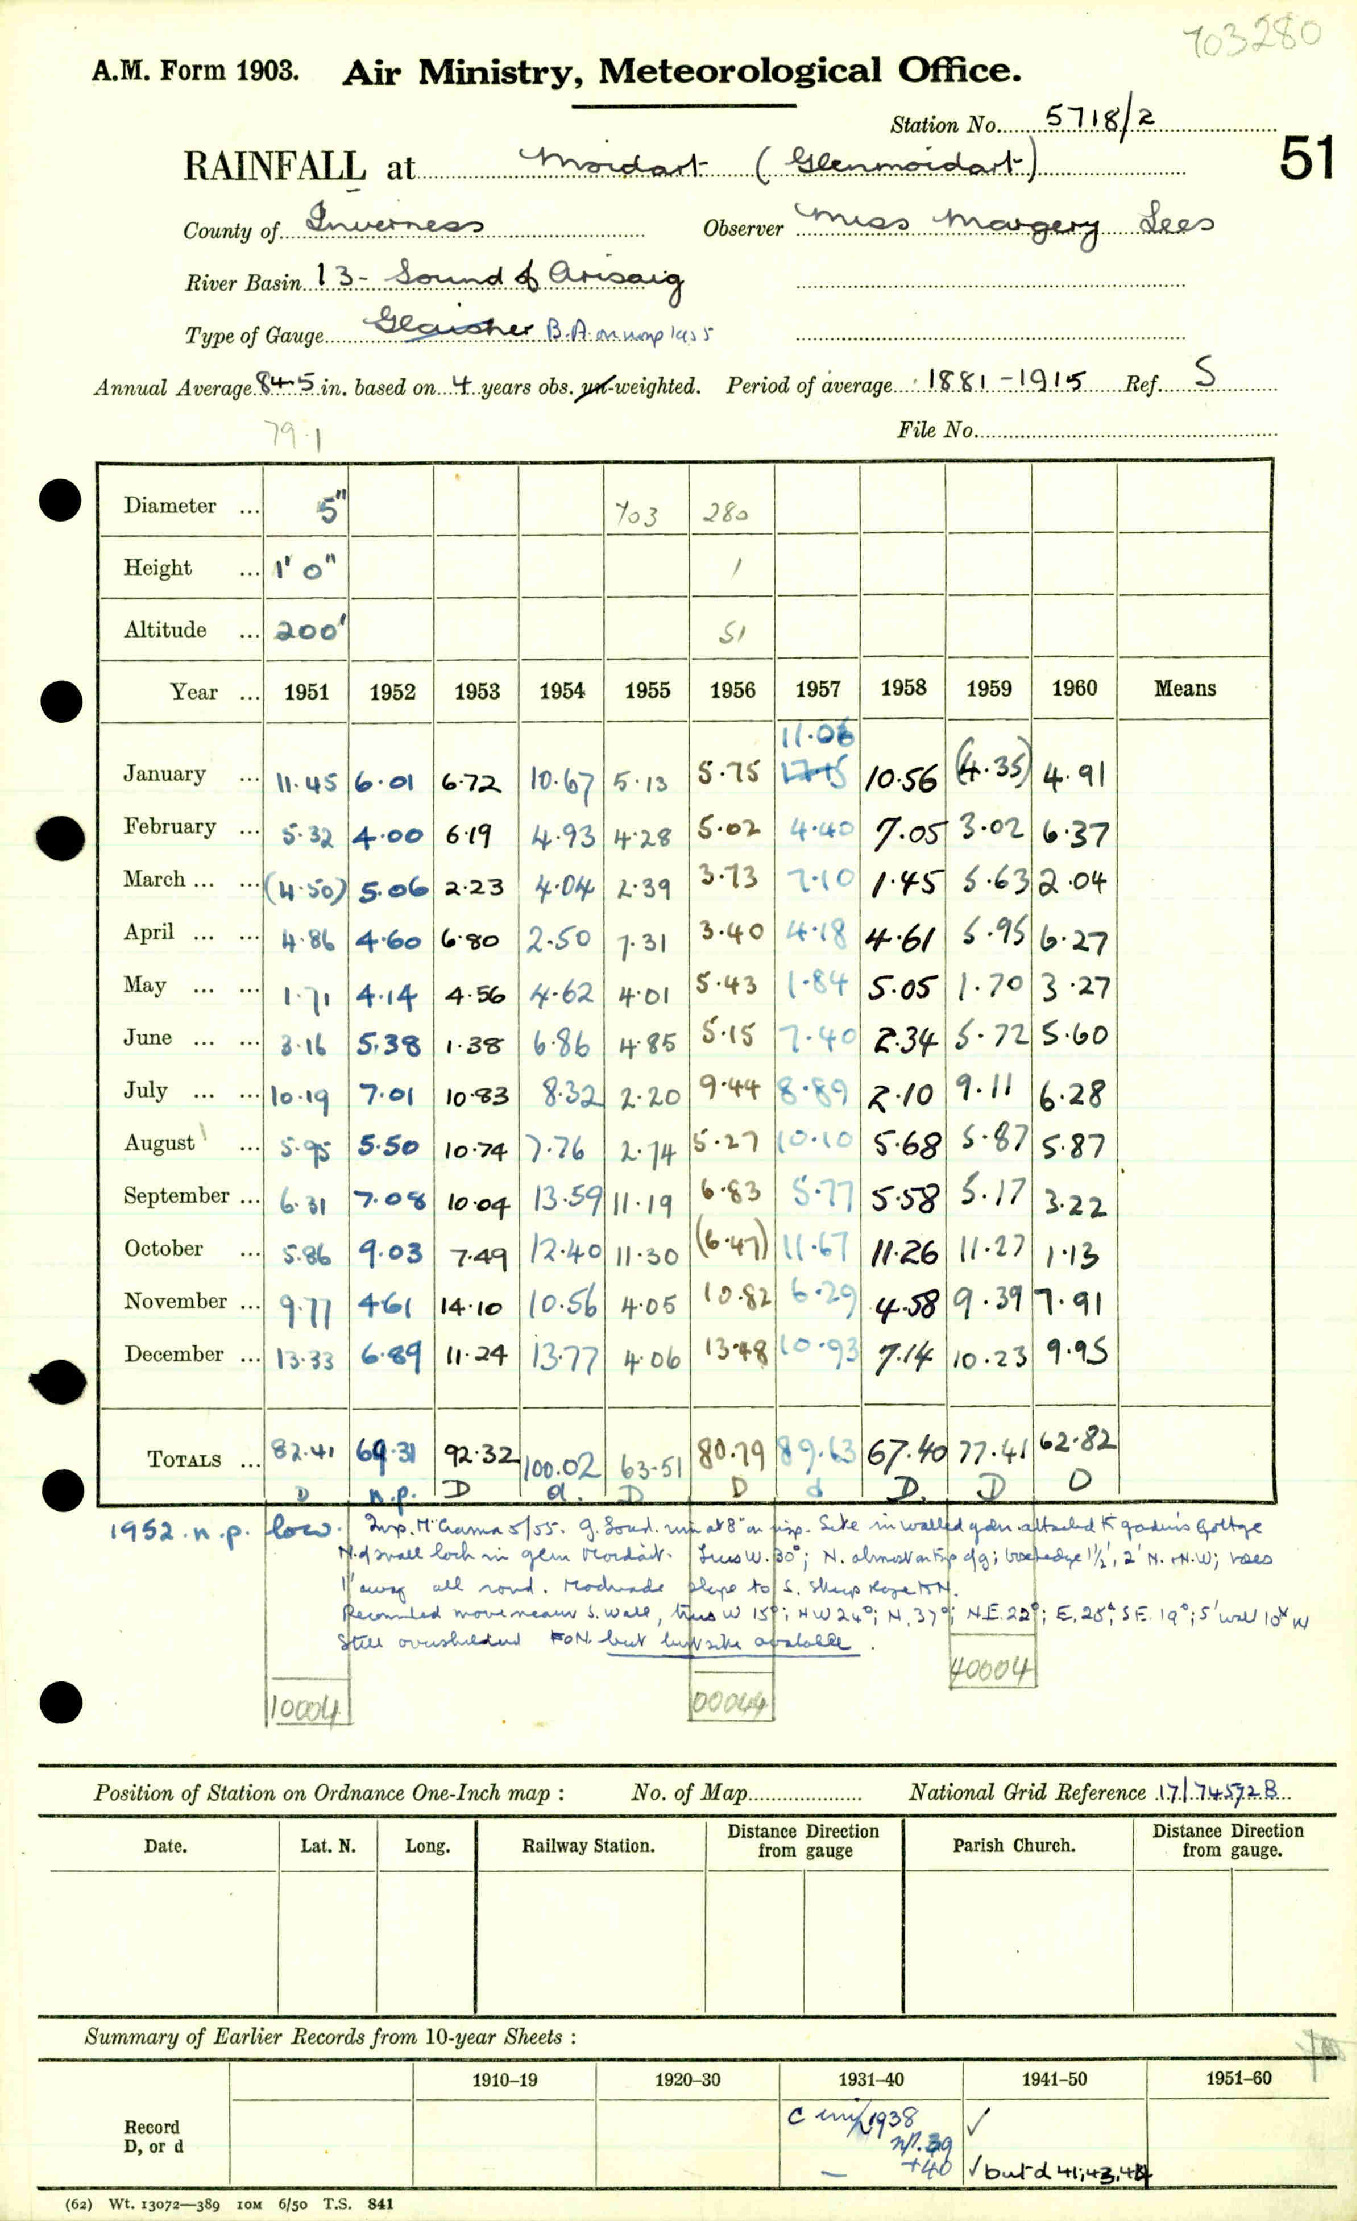 703280
A.M. Form 1903. Air Ministry, Meteorological Office.
Station No. 5718/2
51
RAINFALL at Moidart (Glenmoidart)
County of Inverness Observer Miss Margery Lees
River Basin 13 - Sound of Arisaig
Type of Gauge Glaisher B.A. on insp 1955
Annual Average 84.5 in. based on 4 years obs. un-weighted. Period of average 1881-1915 Ref. S
79.1 File No.
Diameter ... 5" 703 280
Height ... 1' 0" 1
Altitude ... 200' 51
Year ... 1951 1952 1953 1954 1955 1956 1957 1958 1959 1960 Means
11.06
January ... 11.45 6.01 6.72 10.67 5.13 5.75 17.15 10.56 (4.35) 4.91
February ... 5.32 4.00 6.19 4.93 4.28 5.02 4.40 7.05 3.02 6.37
March ... ... (4.50) 5.06 2.23 4.04 2.39 3.73 7.10 1.45 5.63 2.04
April ... ... 4.86 4.60 6.80 2.50 7.31 3.40 4.18 4.61 5.95 6.27
May ... ... 1.71 4.14 4.56 4.62 4.01 5.43 1.84 5.05 1.70 3.27
June ... ... 3.16 5.38 1.38 6.86 4.85 5.15 7.40 2.34 5.72 5.60
July ... ... 10.19 7.01 10.83 8.32 2.20 9.44 8.89 2.10 9.11 6.28
August ... 5.95 5.50 10.74 7.76 2.74 5.27 10.10 5.68 5.87 5.87
September ... 6.31 7.08 10.04 13.59 11.19 6.83 5.77 5.58 5.17 3.22
October ... 5.86 9.03 7.49 12.40 11.30 (6.47) 11.67 11.26 11.27 1.13
November ... 9.77 4.61 14.10 10.56 4.05 10.82 6.29 4.58 9.39 7.91
December ... 13.33 6.89 11.24 13.77 4.06 13.48 10.93 7.14 10.23 9.95
TOTALS ... 82.41 69.31 92.32 100.02 63.51 80.79 89.63 67.40 77.41 62.82
D n.p. D d. D D d D. D D
1952. n.p. low. Insp. 5/55. g. Soud. rim at 8" on insp. Site in walled gdn. attached to Cottge
N. of small loch in glen Moidart. Trees W. 30°; N. almost on top of g; box hedge 1½', 2' N. + N.W; roses
1' away all round. Moderate slope to S.
Recommended move nearer S. wall, trees W 15°; NW 24°; N. 37°; N.E. 22°; E. 25°; S.E. 19°; S' wall 10°
Still overshielded but best site available.
40004
10004 00044
Position of Station on Ordnance One-Inch map : No. of Map National Grid Reference 17/745728
Date. Lat. N. Long. Railway Station. Distance from Direction gauge Parish Church. Distance from Direction gauge.
Summary of Earlier Records from 10-year Sheets :
1910-19 1920-30 1931-40 1941-50 1951-60
Record D, or d
1938 ✓
n.p. 39
— +40 ✓ but d 41, 43, 44
(62) Wt. 13072—389 10M 6/50 T.S. 841